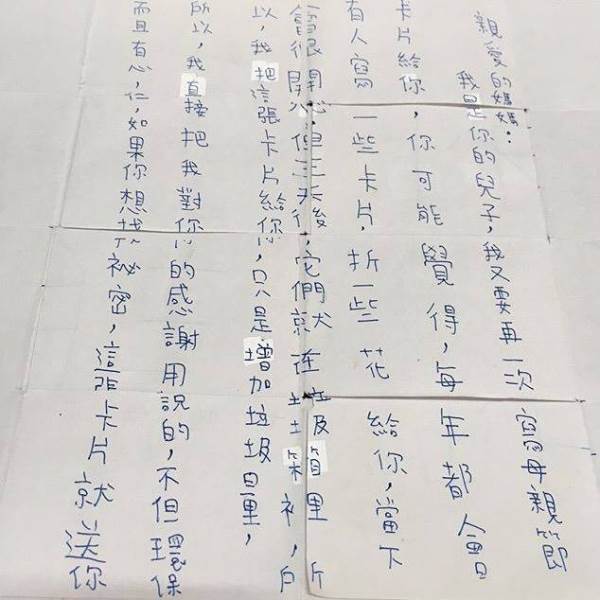 親愛的媽媽：
我是你的兒子，我又要再一次寫母親節
卡片給你，你可能覺得，每年都會
有人寫一些卡片，折一些花給你，當下
會很開心，但三天後，它們就在垃圾箱里，所
以，我把這張卡片給你，只是增加垃圾量，
所以，我直接把我對你的感謝用說的，不但環保
而且有心，仁，如果你想找祕密，這張卡片就送你